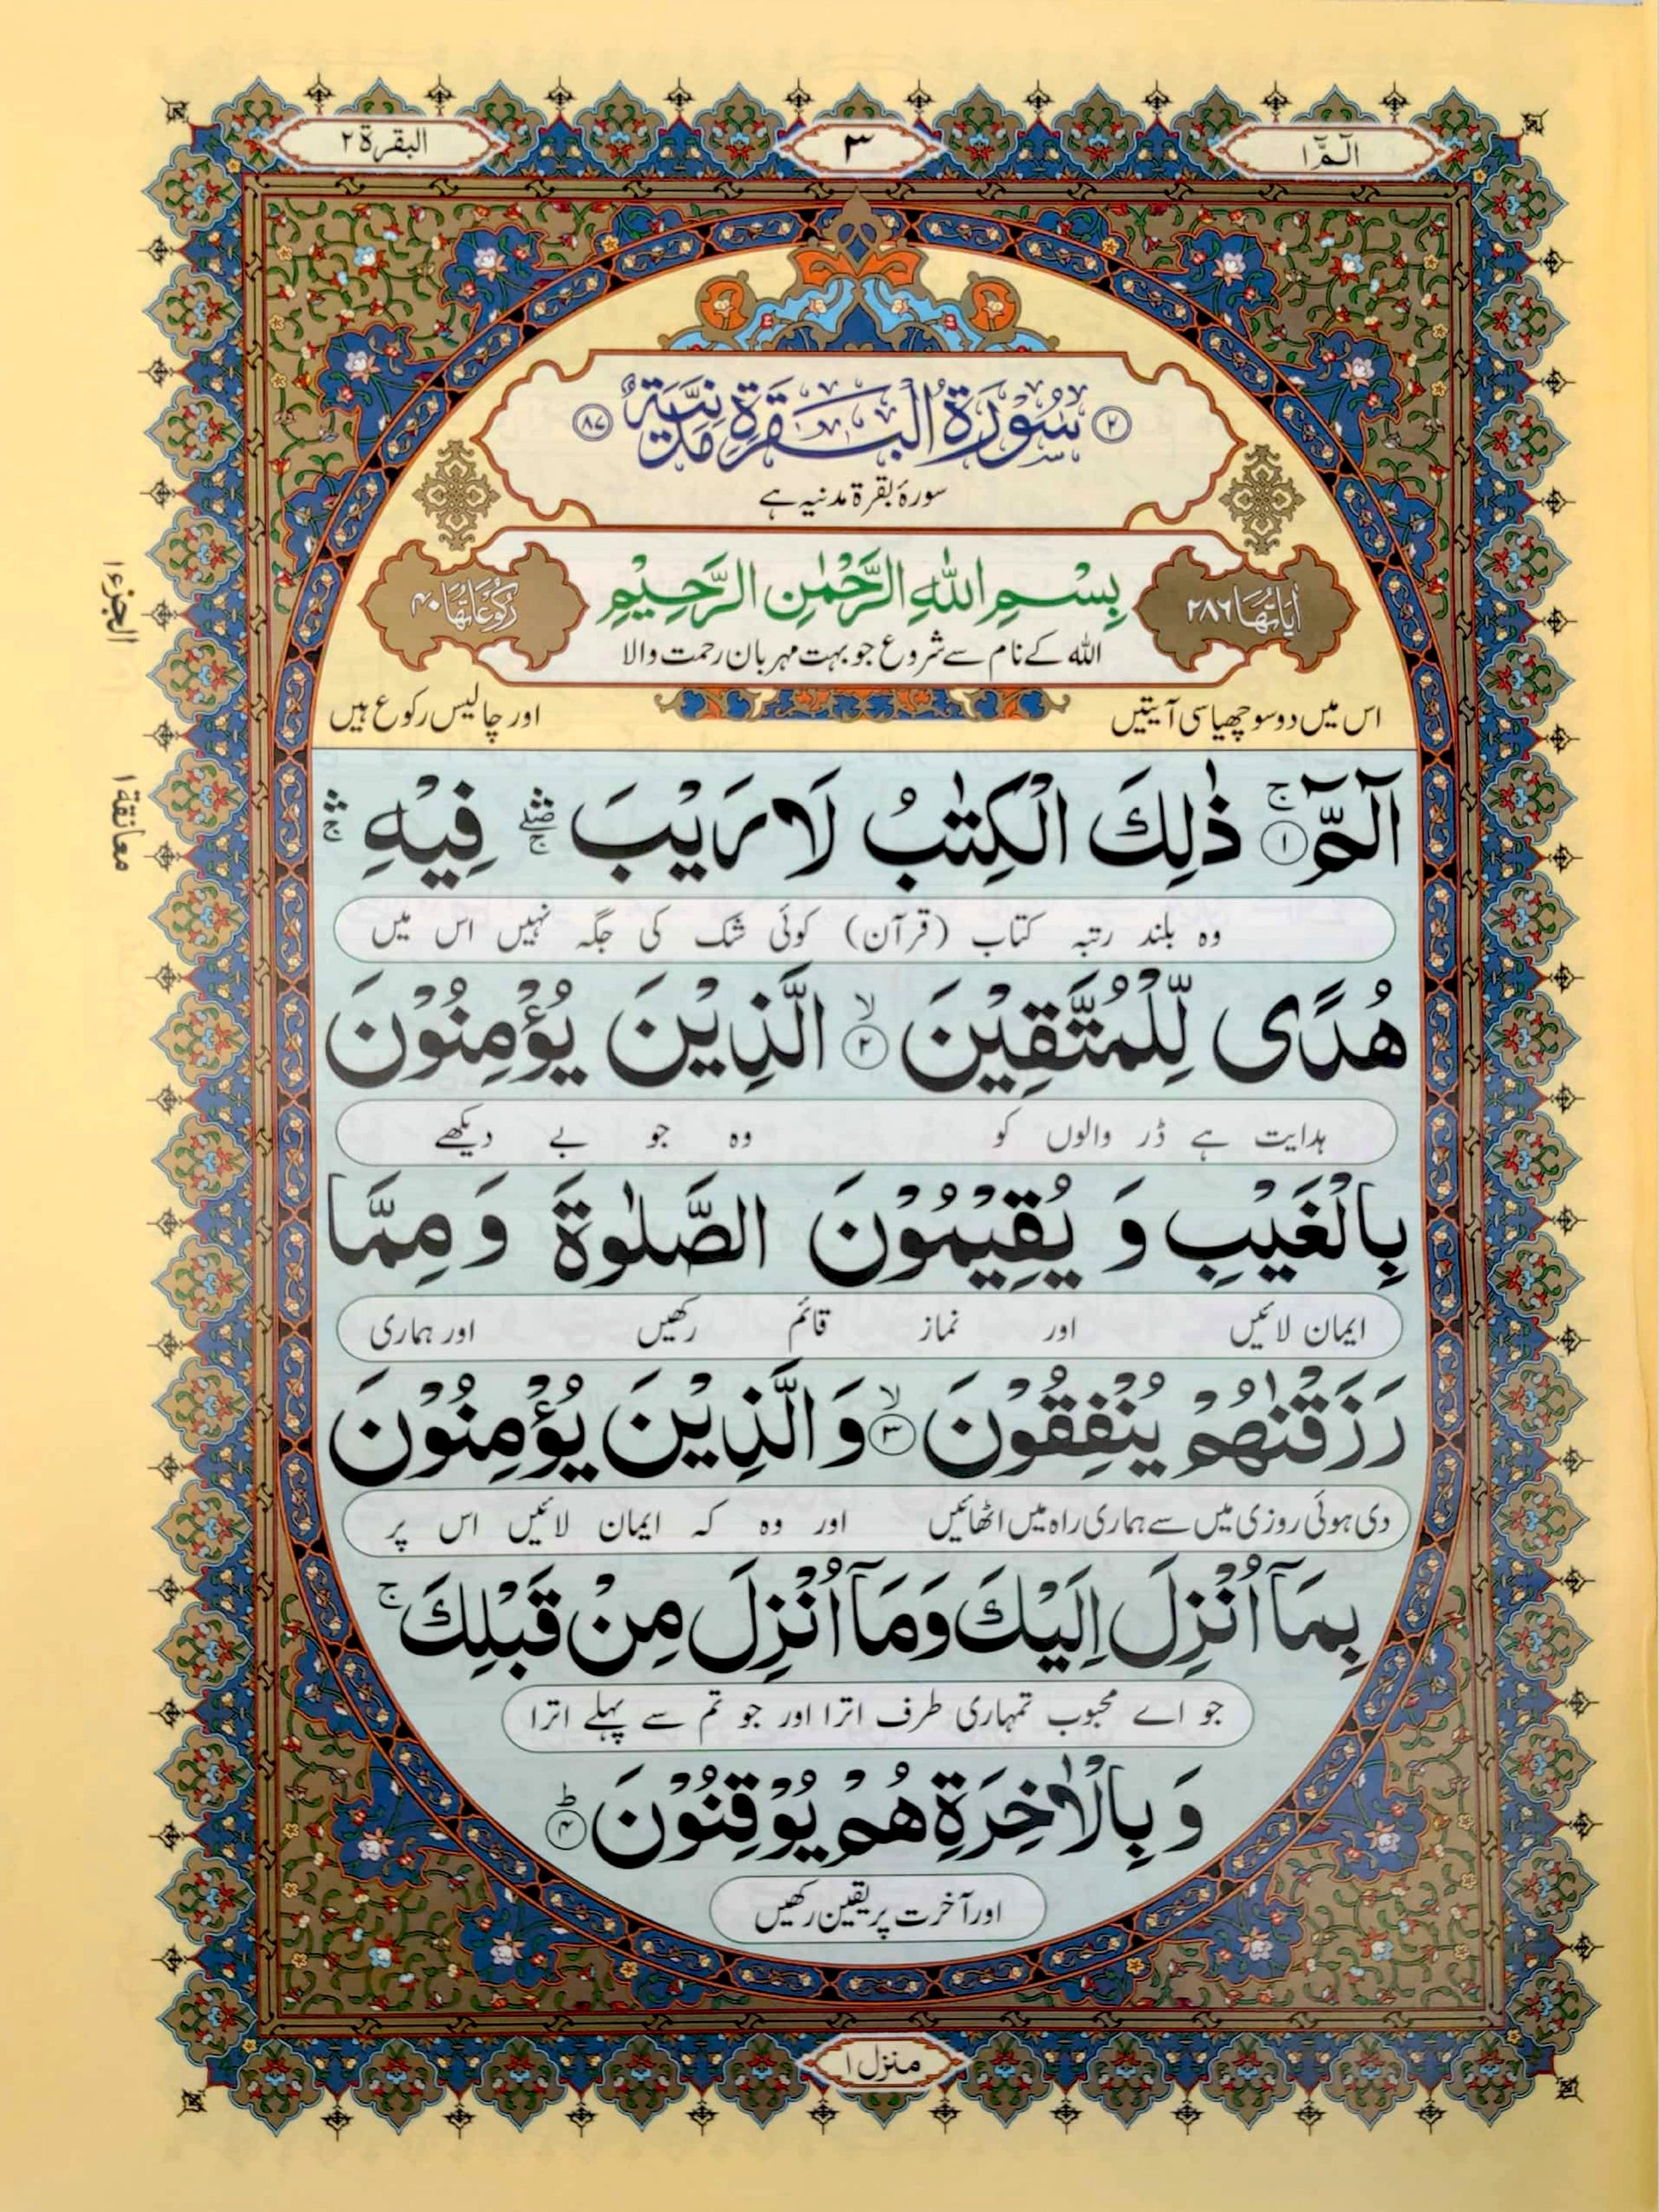 الٓمّٓ ١
٣
البقرة ٢
٢ سُوْرَةُ الْبَقَرَةِ مَدَنِيَّةٌ ٨٧
سورۂ بقرۃ مدنیہ ہے
اٰيَاتُهَا ٢٨٦
بِسْمِ اللّٰهِ الرَّحْمٰنِ الرَّحِيْمِ
رُكُوْعَاتُهَا ٤٠
اللہ کے نام سے شروع جو بہت مہربان رحمت والا
اس میں دو سو چھیاسی آیتیں
اور چالیس رکوع ہیں
الٓمّٓ ۚ﴿١﴾ ذٰلِكَ الْكِتٰبُ لَا رَيْبَ ۛۖۚ فِيْهِ ۛۚ
وہ بلند رتبہ کتاب (قرآن) کوئی شک کی جگہ نہیں اس میں
هُدًى لِّلْمُتَّقِيْنَ ۙ﴿٢﴾ الَّذِيْنَ يُؤْمِنُوْنَ
ہدایت ہے ڈر والوں کو وہ جو بے دیکھے
بِالْغَيْبِ وَ يُقِيْمُوْنَ الصَّلٰوةَ وَ مِمَّا
ایمان لائیں اور نماز قائم رکھیں اور ہماری
رَزَقْنٰهُمْ يُنْفِقُوْنَ ۙ﴿٣﴾ وَ الَّذِيْنَ يُؤْمِنُوْنَ
دی ہوئی روزی میں سے ہماری راہ میں اٹھائیں اور وہ کہ ایمان لائیں اس پر
بِمَآ اُنْزِلَ اِلَيْكَ وَمَآ اُنْزِلَ مِنْ قَبْلِكَ ۚ
جو اے محبوب تمہاری طرف اترا اور جو تم سے پہلے اترا
وَ بِالْاٰخِرَةِ هُمْ يُوْقِنُوْنَ ؕ﴿٤﴾
اور آخرت پر یقین رکھیں
منزل ١
الجزء ١
معانقة ١